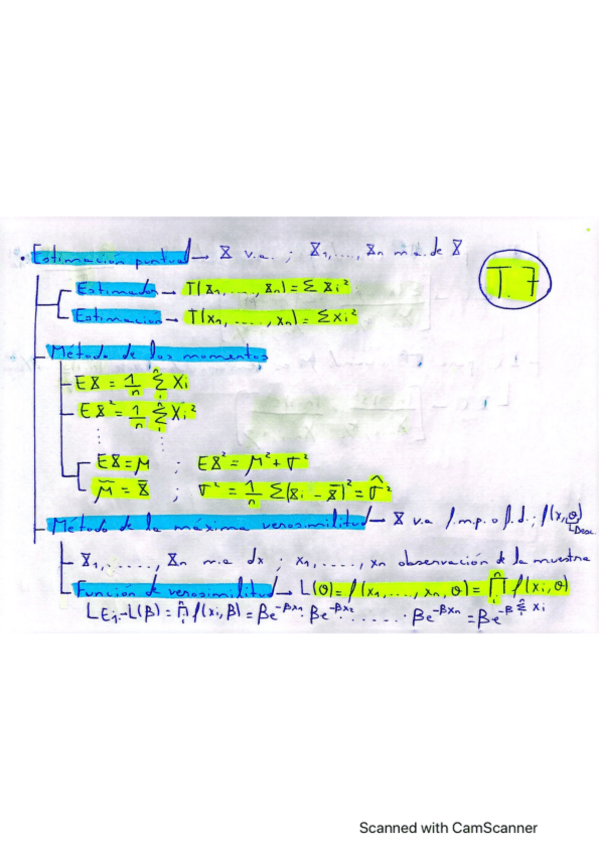 • Estimación puntual → X v.a. ; X₁,...., Xₙ m.a. de X
T. 7
Estimador → T(X₁,....,Xₙ) = Σ Xᵢ²
Estimación → T(x₁,....,xₙ) = Σxᵢ²
Método de los momentos
EX = 1/n Σⁿᵢ Xᵢ
EX² = 1/n Σⁿᵢ Xᵢ²
⋮ ⋮
EX = μ ; EX² = μ² + σ²
μ̃ = X̄ ; σ² = 1/n Σ(Xᵢ - X̄)² = σ̂²
Método de la máxima verosimilitud → X v.a f.m.p. o f.d. ; f(x,θ)
↳Desc
X₁,....., Xₙ m.a dx ; x₁,....., xₙ observación de la muestra
Función de verosimilitud → L(θ) = f(x₁,...., xₙ, θ) = ∏ⁿᵢ f(xᵢ,θ)
LEj.→L(β) = ∏ⁿᵢ f(xᵢ,β) = βe^-βx₁ · βe^-βx₂ ....... · βe^-βxₙ = βe^-β Σⁿᵢ xᵢ
Scanned with CamScanner